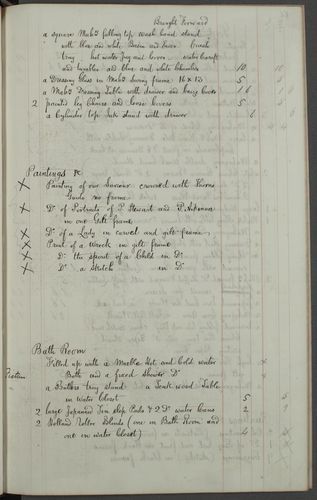 Brought Forward
a square Mah⁰ folding top wash hand stand
with blue and white Basin and Ewer
tray hot water Jug and cover water
and tumbler and blue and white Chamber 10 10
a Dressing Glass in Mah⁰ Swing frame 16 x 13 5
a Mah⁰ Dressing Table with drawer and baize cover 16
2 painted leg Chairs and loose covers 5
a Cylinder top Side stand with drawer 6
Paintings &c
X Painting of our Saviour crowned with Thorns
no frame
X D⁰ of Portraits of P. Stewart and P.
in one Gilt frame
X D⁰ of a Lady in carved and gilt frame
X Print of a Wreck in gilt frame
X D⁰ the spirit of a Child in D⁰
X D⁰ a Sketch in D⁰
Bath Room
Fitted up with a Marble Hot and Cold water
Bath and a fixed Shower D⁰
a Butlers tray stand a Teak wood Table
in Water Closet 5 5
2 large Japanned Tin slop Pails & 2 D⁰ water Cans 2
2 Holland Roller Blinds (one in Bath Room and
one in water Closet) 4